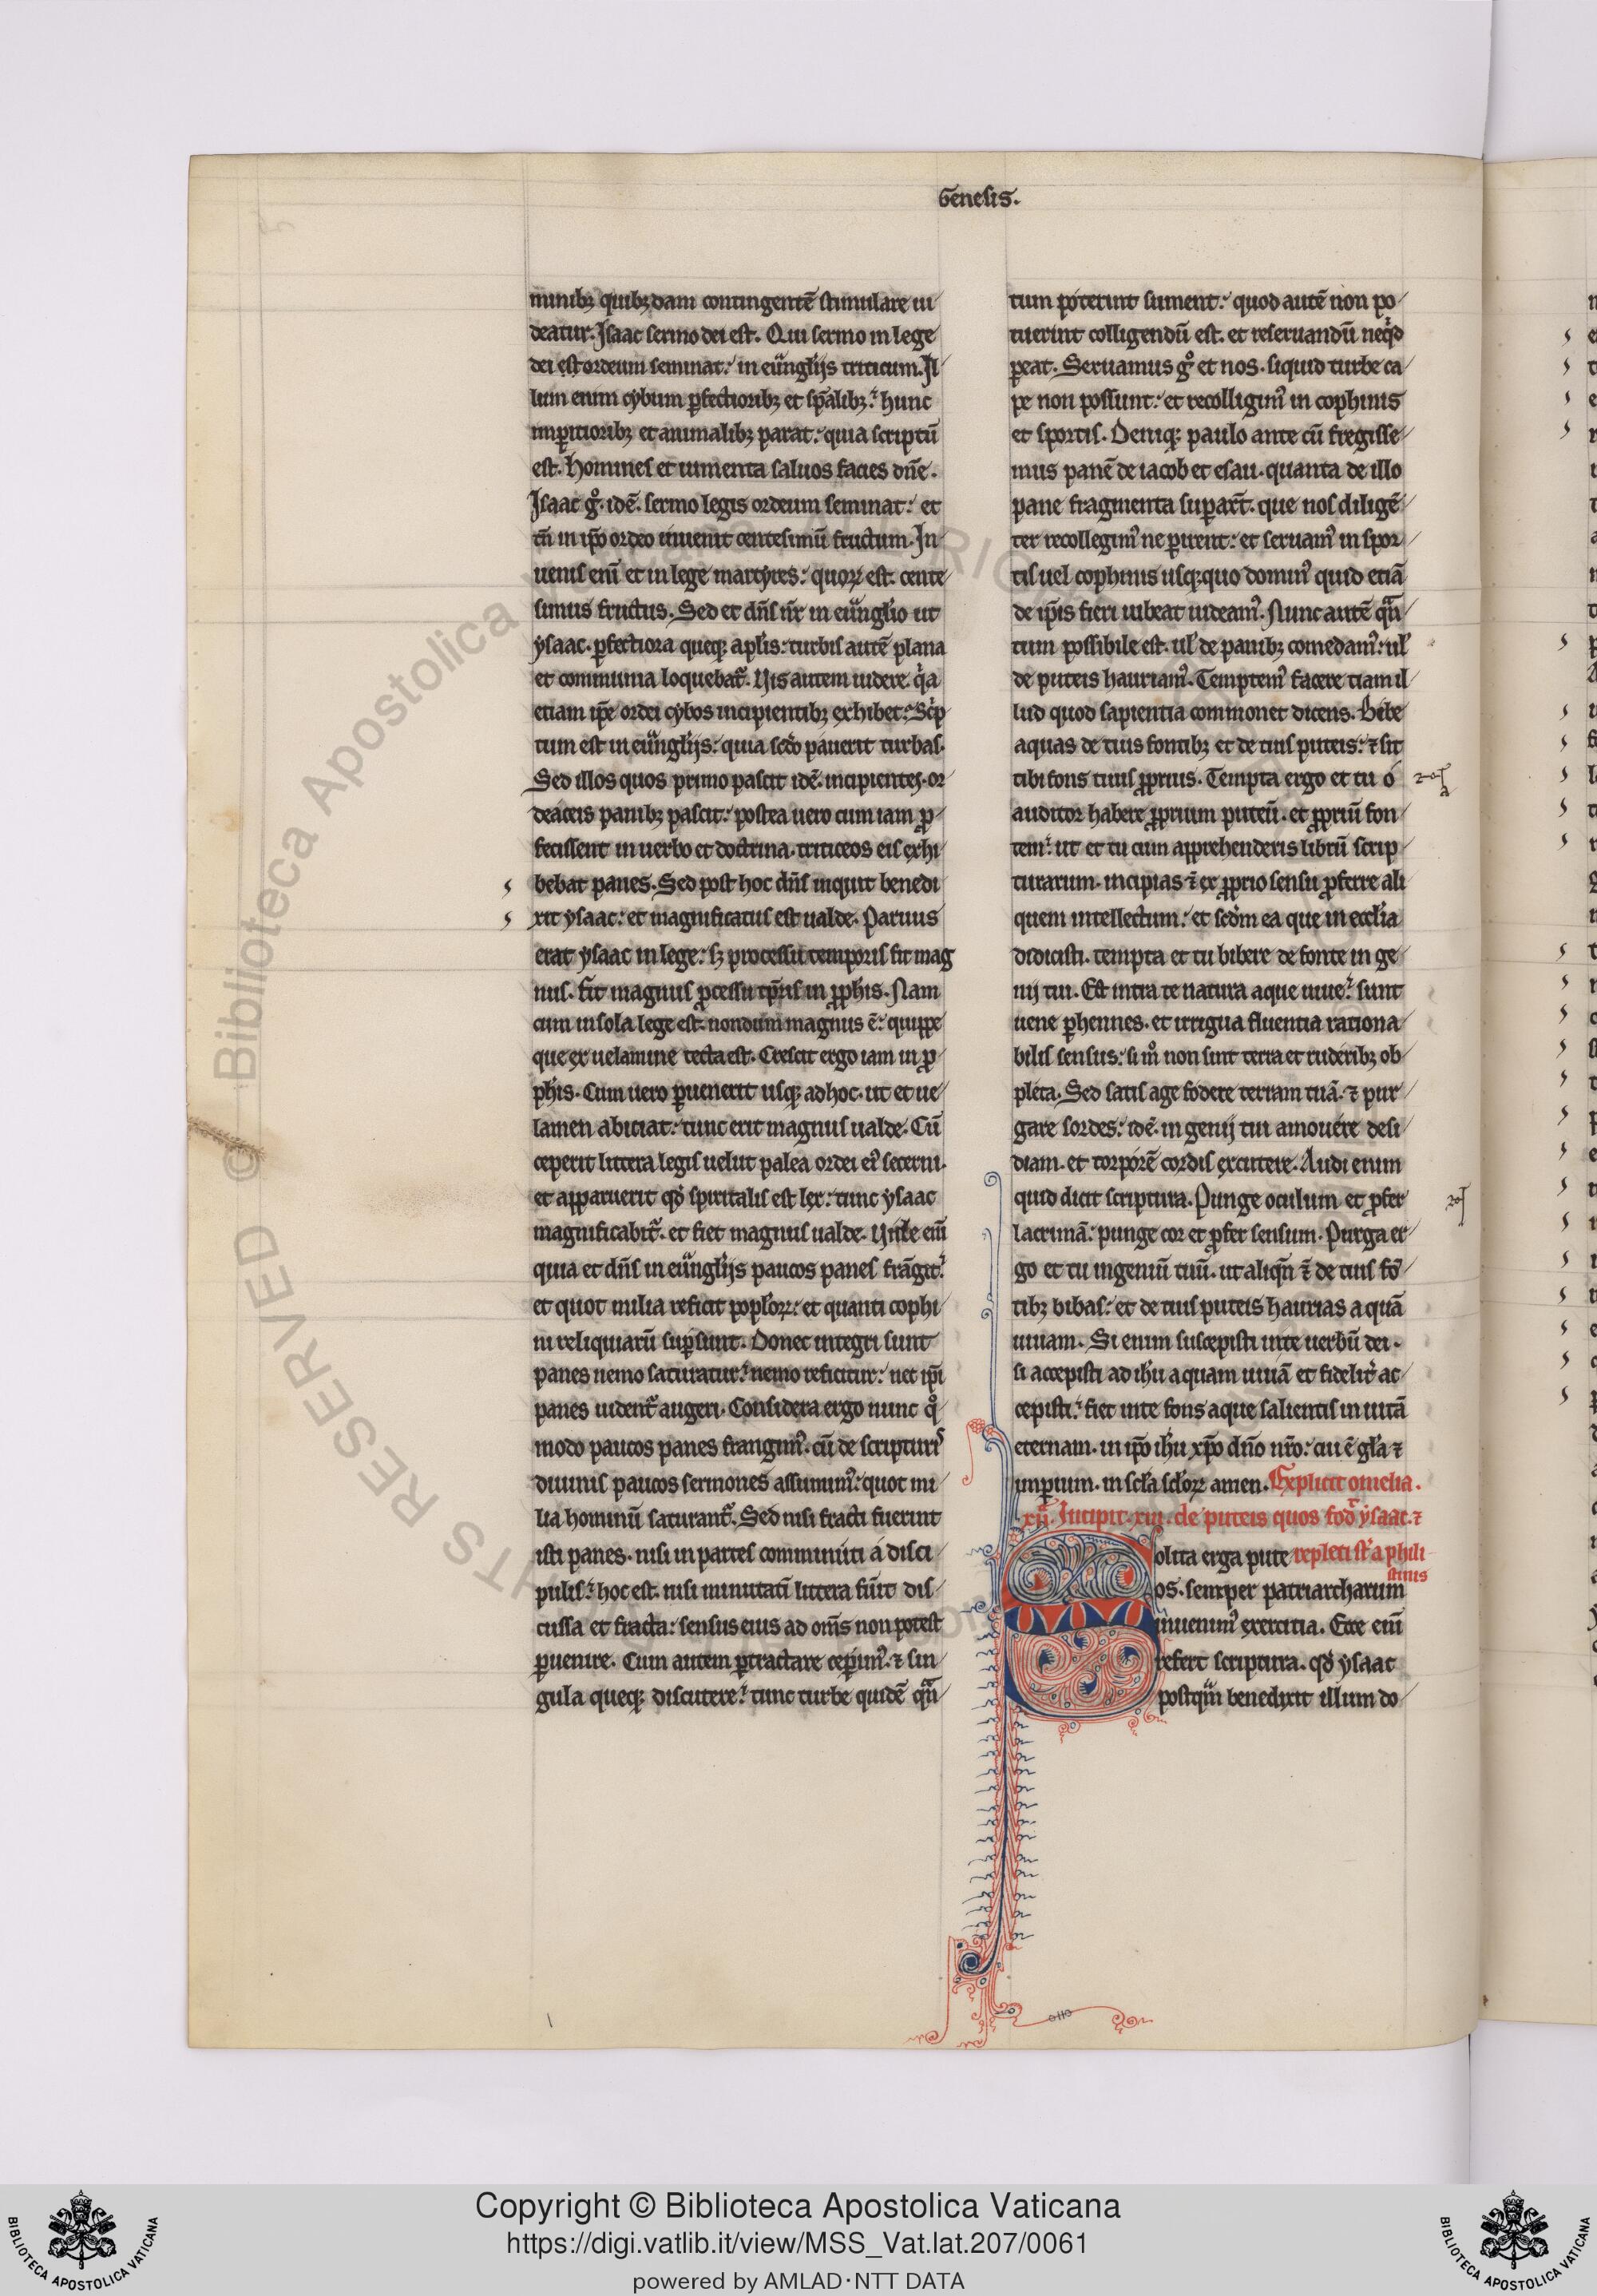 Genesis.
minibꝫ quibꝫdam contingentē stimulare ui
deatur. Isaac sermo dei est. Qui sermo in lege
dei est ordeum seminat: in euͣnglijs triticum. Il
lum enim cybum ꝑfectioribꝫ et sp̄alibꝫ: hunc
imꝑitioribꝫ et animalibꝫ parat: quia scriptū
est. Homines et iumenta saluos facies dn̄e.
Isaac gͦ. idē. sermo legis ordeum seminat: et
tn̄ in ip̄o ordeo inuenit centesimū fructum. In
uenis eni̅ et in lege martyres: quoꝝ est cente
simus fructus. Sed et dn̄s nr̄ in euͣnglio ut
ysaac. ꝑfectiora queqꝫ aplīs: turbis autē plana
et communia loquebat᷑. Uis autem uidere qͥa
etiam ip̄e ordei cybos incipientibꝫ exhibet: Scͥp
tum est in euͣnglijs: quia scd̄o pauerit turbas.
Sed illos quos primo pascit idē. incipientes. or
deaceis panibꝫ pascit: postea uero cum iam ꝓ
fecissent in uerbo et doctrina. triticeos eis exhi
bebat panes. Sed post hoc dn̄s inquit benedi
xit ysaac: et magnificatus est ualde. Paruus
erat ysaac in lege: sꝫ processu temporis fit mag
nus. Fit magnus ꝓcessu tp̄ris in ꝓphis. Nam
cum in sola lege est. nondum magnus ē: quippe
que ex uelamine tecta est. Crescit ergo iam in ꝓ
phis. Cum uero ꝑuenerit usqꝫ ad hoc. ut et ue
lamen abiciat: tunc erit magnus ualde. Cū
ceperit littera legis uelut palea ordei eiꝰ secerni.
et apparuerit qd̄ spiritalis est lex: tunc ysaac
magnificabit᷑. et fiet magnus ualde. Uide eni̅
quia et dn̄s in euͣnglijs paucos panes frāgit:
et quot milia reficit popl̓oꝝ: et quanti cophi
ni reliquiarū suꝑsunt. Donec integri sunt
panes nemo saturatur: nemo reficitur: nec ip̄i
panes uident᷑ augeri. Considera ergo nunc qͦ
modo paucos panes frangimꝰ. cū de scripturis
diuinis paucos sermones assumimꝰ: quot mi
lia hominū saturant᷑. Sed nisi fracti fuerint
isti panes. nisi in partes comminuti a disci
pulis: hoc est. nisi minutati̅ littera fūit dis
cussa et fracta: sensus eius ad om̄s non potest
ꝑuenire. Cum autem ꝑtractare ceꝑimꝰ. ⁊ sin
gula queqꝫ discutere: tunc turbe quidē qͣn
tum poterint sument: quod autē non po
tuerint colligendū est. et reseruandū ne qͥd
ꝑeat. Seruamus gͦ et nos. siquid turbe ca
pe non possunt: et recolligimꝰ in cophinis
et sportis. Deniqꝫ paulo ante cū fregisse
mus panē de iacob et esau. quanta de illo
pane fragmenta suꝑart̄. que nos diligē
ter recollegimꝰ ne ꝑirent: et seruamꝰ in spor
tis uel cophinis usqꝫquo dominꝰ quid etiā
de ip̄is fieri iubeat uideamꝰ. Nunc autē qͣn
tum possibile est. ul̓ de panibꝫ comedamꝰ: ul̓
de puteis hauriamꝰ. Temptemꝰ facere etiam il
lud quod sapientia commonet dicens. Bibe
aquas de tuis fontibꝫ et de tuis puteis: ⁊ sit
tibi fons tuus ꝓprius. Tempta ergo et tu o
auditor habere ꝓprium puteū. et ꝓpriū fon
tem: ut et tu cum apprehenderis librū scrip
turarum. incipias ⁊̄ ex ꝓprio sensu ꝓferre ali
quem intellectum: et scd̄m ea que in eccl̓ia
didicisti. tempta et tu bibere de fonte inge
nij tui. Est intra te natura aque uiue: sunt
uene ꝑhennes. et irrigua fluentia rationa
bilis sensus: si mͦ non sint terra et ruderibꝫ ob
pleta. Sed satis age fodere terram tuā. ⁊ pur
gare sordes: idē. ingenij tui amouere desi
diam. et torporē cordis excutere. Audi enim
quid dicit scriptura. Punge oculum et ꝓfer
lacrimā: punge cor et ꝓfer sensum. Purga er
go et tu ingeniū tuū. ut aliqn̄ ⁊̄ de tuis fō
tibꝫ bibas: et de tuis puteis haurias aquā
uiuam. Si enim suscepisti in te uerbū dei.
si accepisti ad ih̄u aquam uiuā et fidelit᷑ ac
cepisti: fiet in te fons aque salientis in uitā
eternam. in ip̄o ih̄u xp̄o dn̄o nr̄o: cui ē gl̓a ⁊
imꝑium. in scl̓a scl̓oꝝ amen. Explicit omelia.
xij. Incipit. xiij. de puteis quos fod᷑ ysaac. ⁊
Solita erga pute repleti st̄ a phili
stinis
os. semper patriarcharum
inuenimꝰ exercitia. Ecce eni̅
refert scriptura. qd̄ ysaac
postqͣm benedixit illum do
Copyright © Biblioteca Apostolica Vaticana
https://digi.vatlib.it/view/MSS_Vat.lat.207/0061
powered by AMLAD·NTT DATA